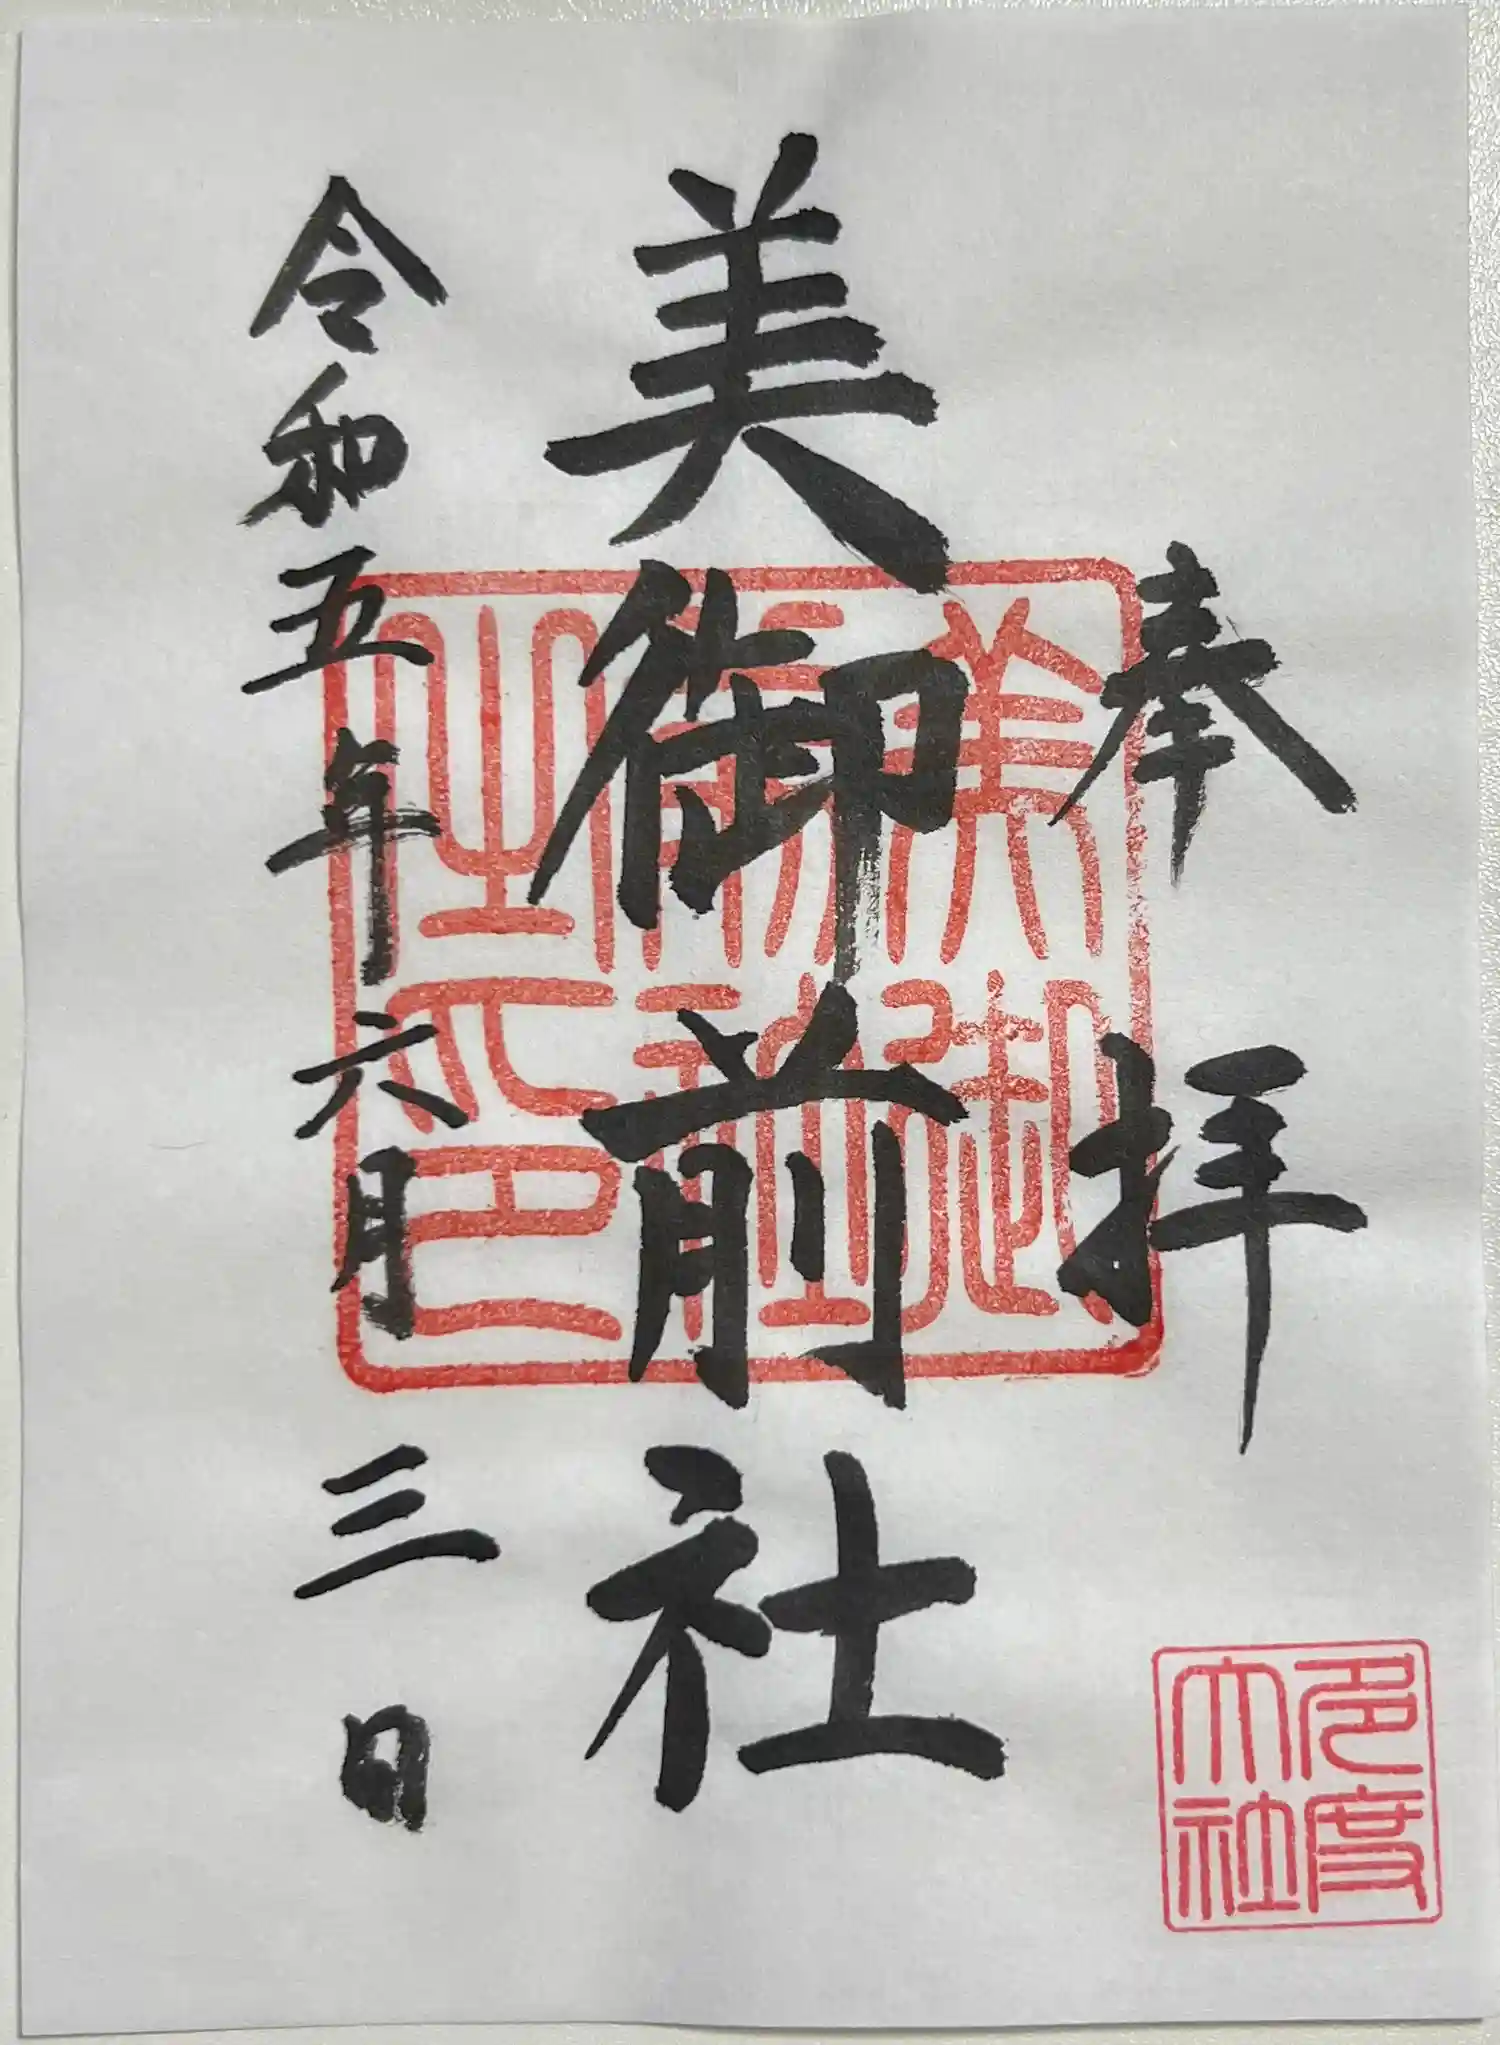 奉拝
美御前社
令和五年六月三日
美御
前社
之印
多度
大社